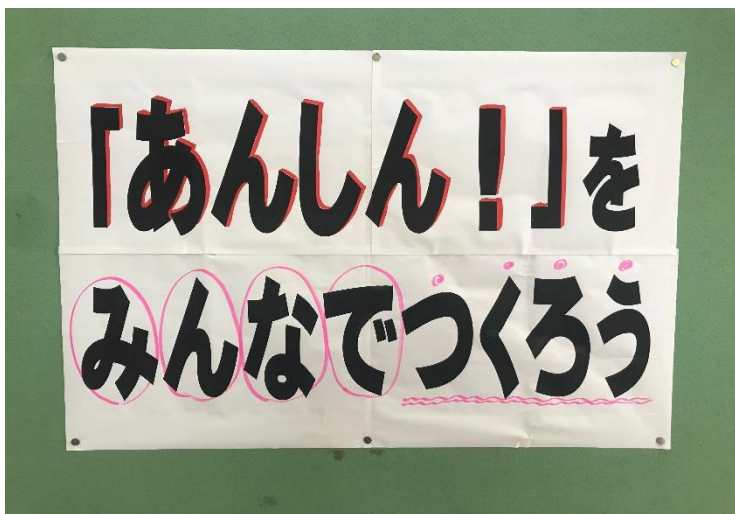 「あんしん！」を
みんなでつくろう